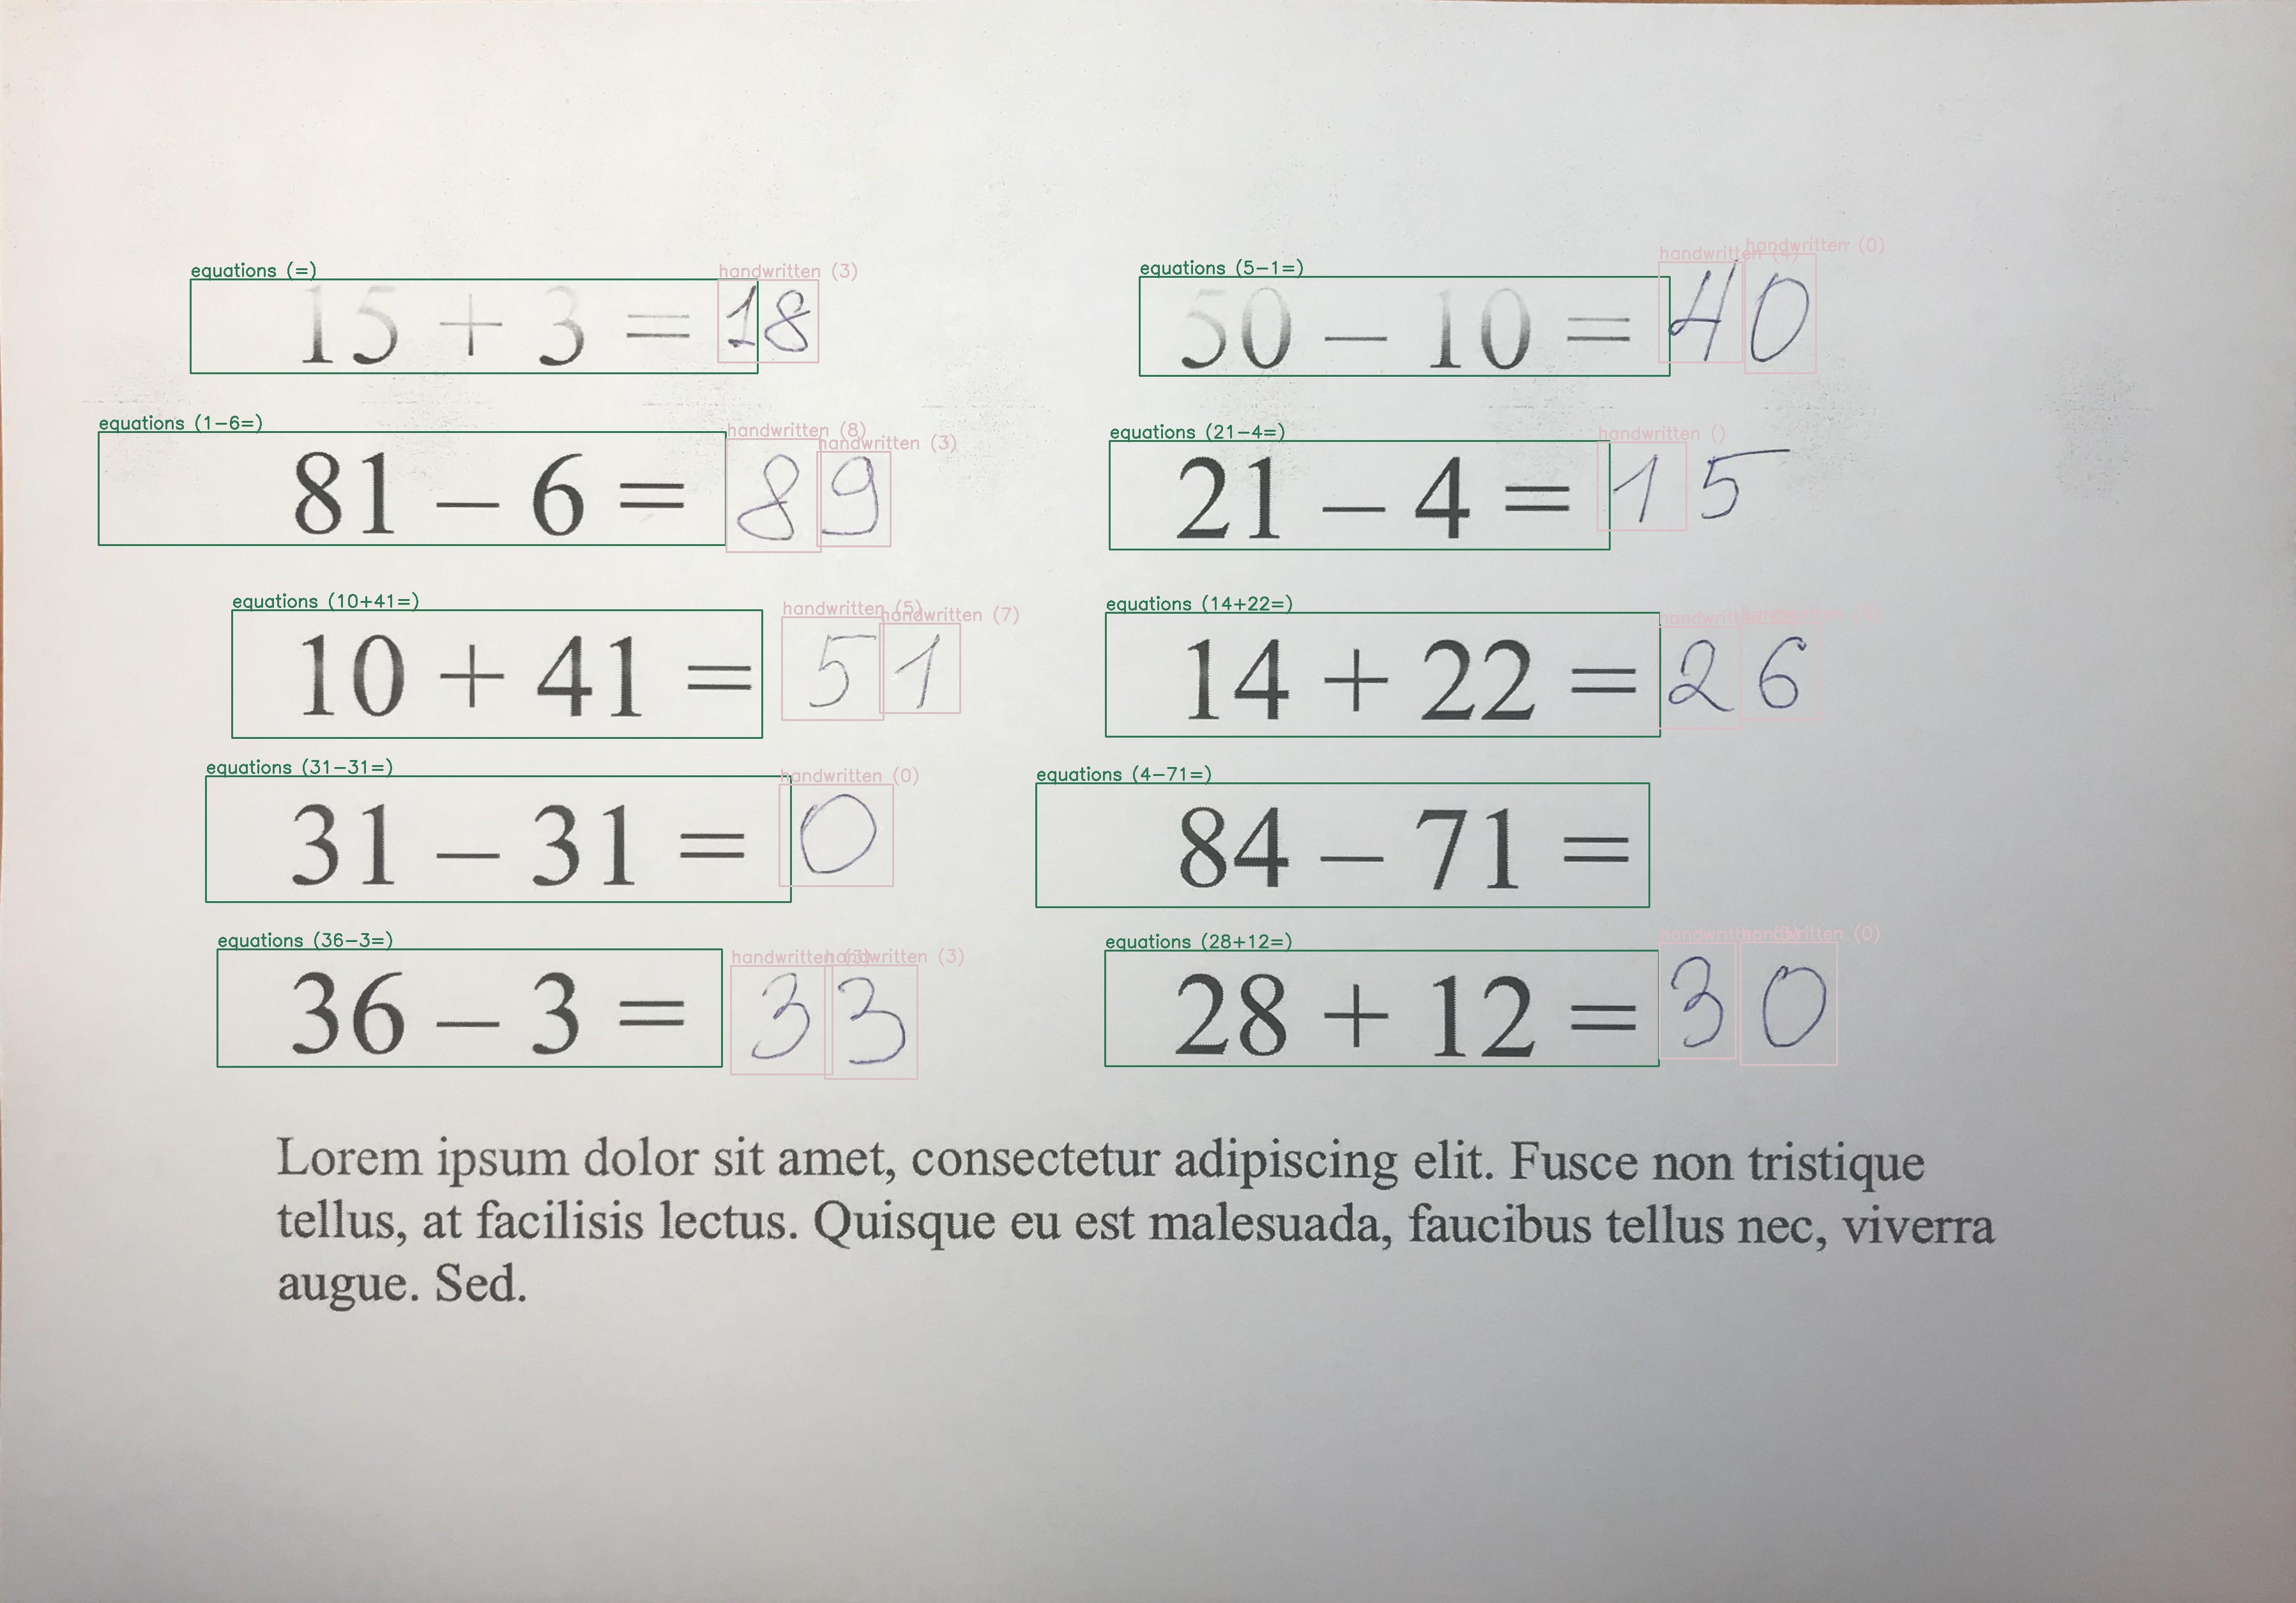 equations (=) handwritten (3) equations (5-1=) handwritten (4) handwritten (0)
15 + 3 = 18 50 – 10 = 40
equations (1-6=) handwritten (8) handwritten (3) equations (21-4=) handwritten ()
81 – 6 = 89 21 – 4 = 15
equations (10+41=) handwritten (5) handwritten (7) equations (14+22=)
10 + 41 = 51 14 + 22 = 26
equations (31-31=) handwritten (0) equations (4-71=)
31 – 31 = 0 84 – 71 =
equations (36-3=) handwritten (3) handwritten (3) equations (28+12=) handwritten handwritten (0)
36 – 3 = 33 28 + 12 = 30
Lorem ipsum dolor sit amet, consectetur adipiscing elit. Fusce non tristique
tellus, at facilisis lectus. Quisque eu est malesuada, faucibus tellus nec, viverra
augue. Sed.